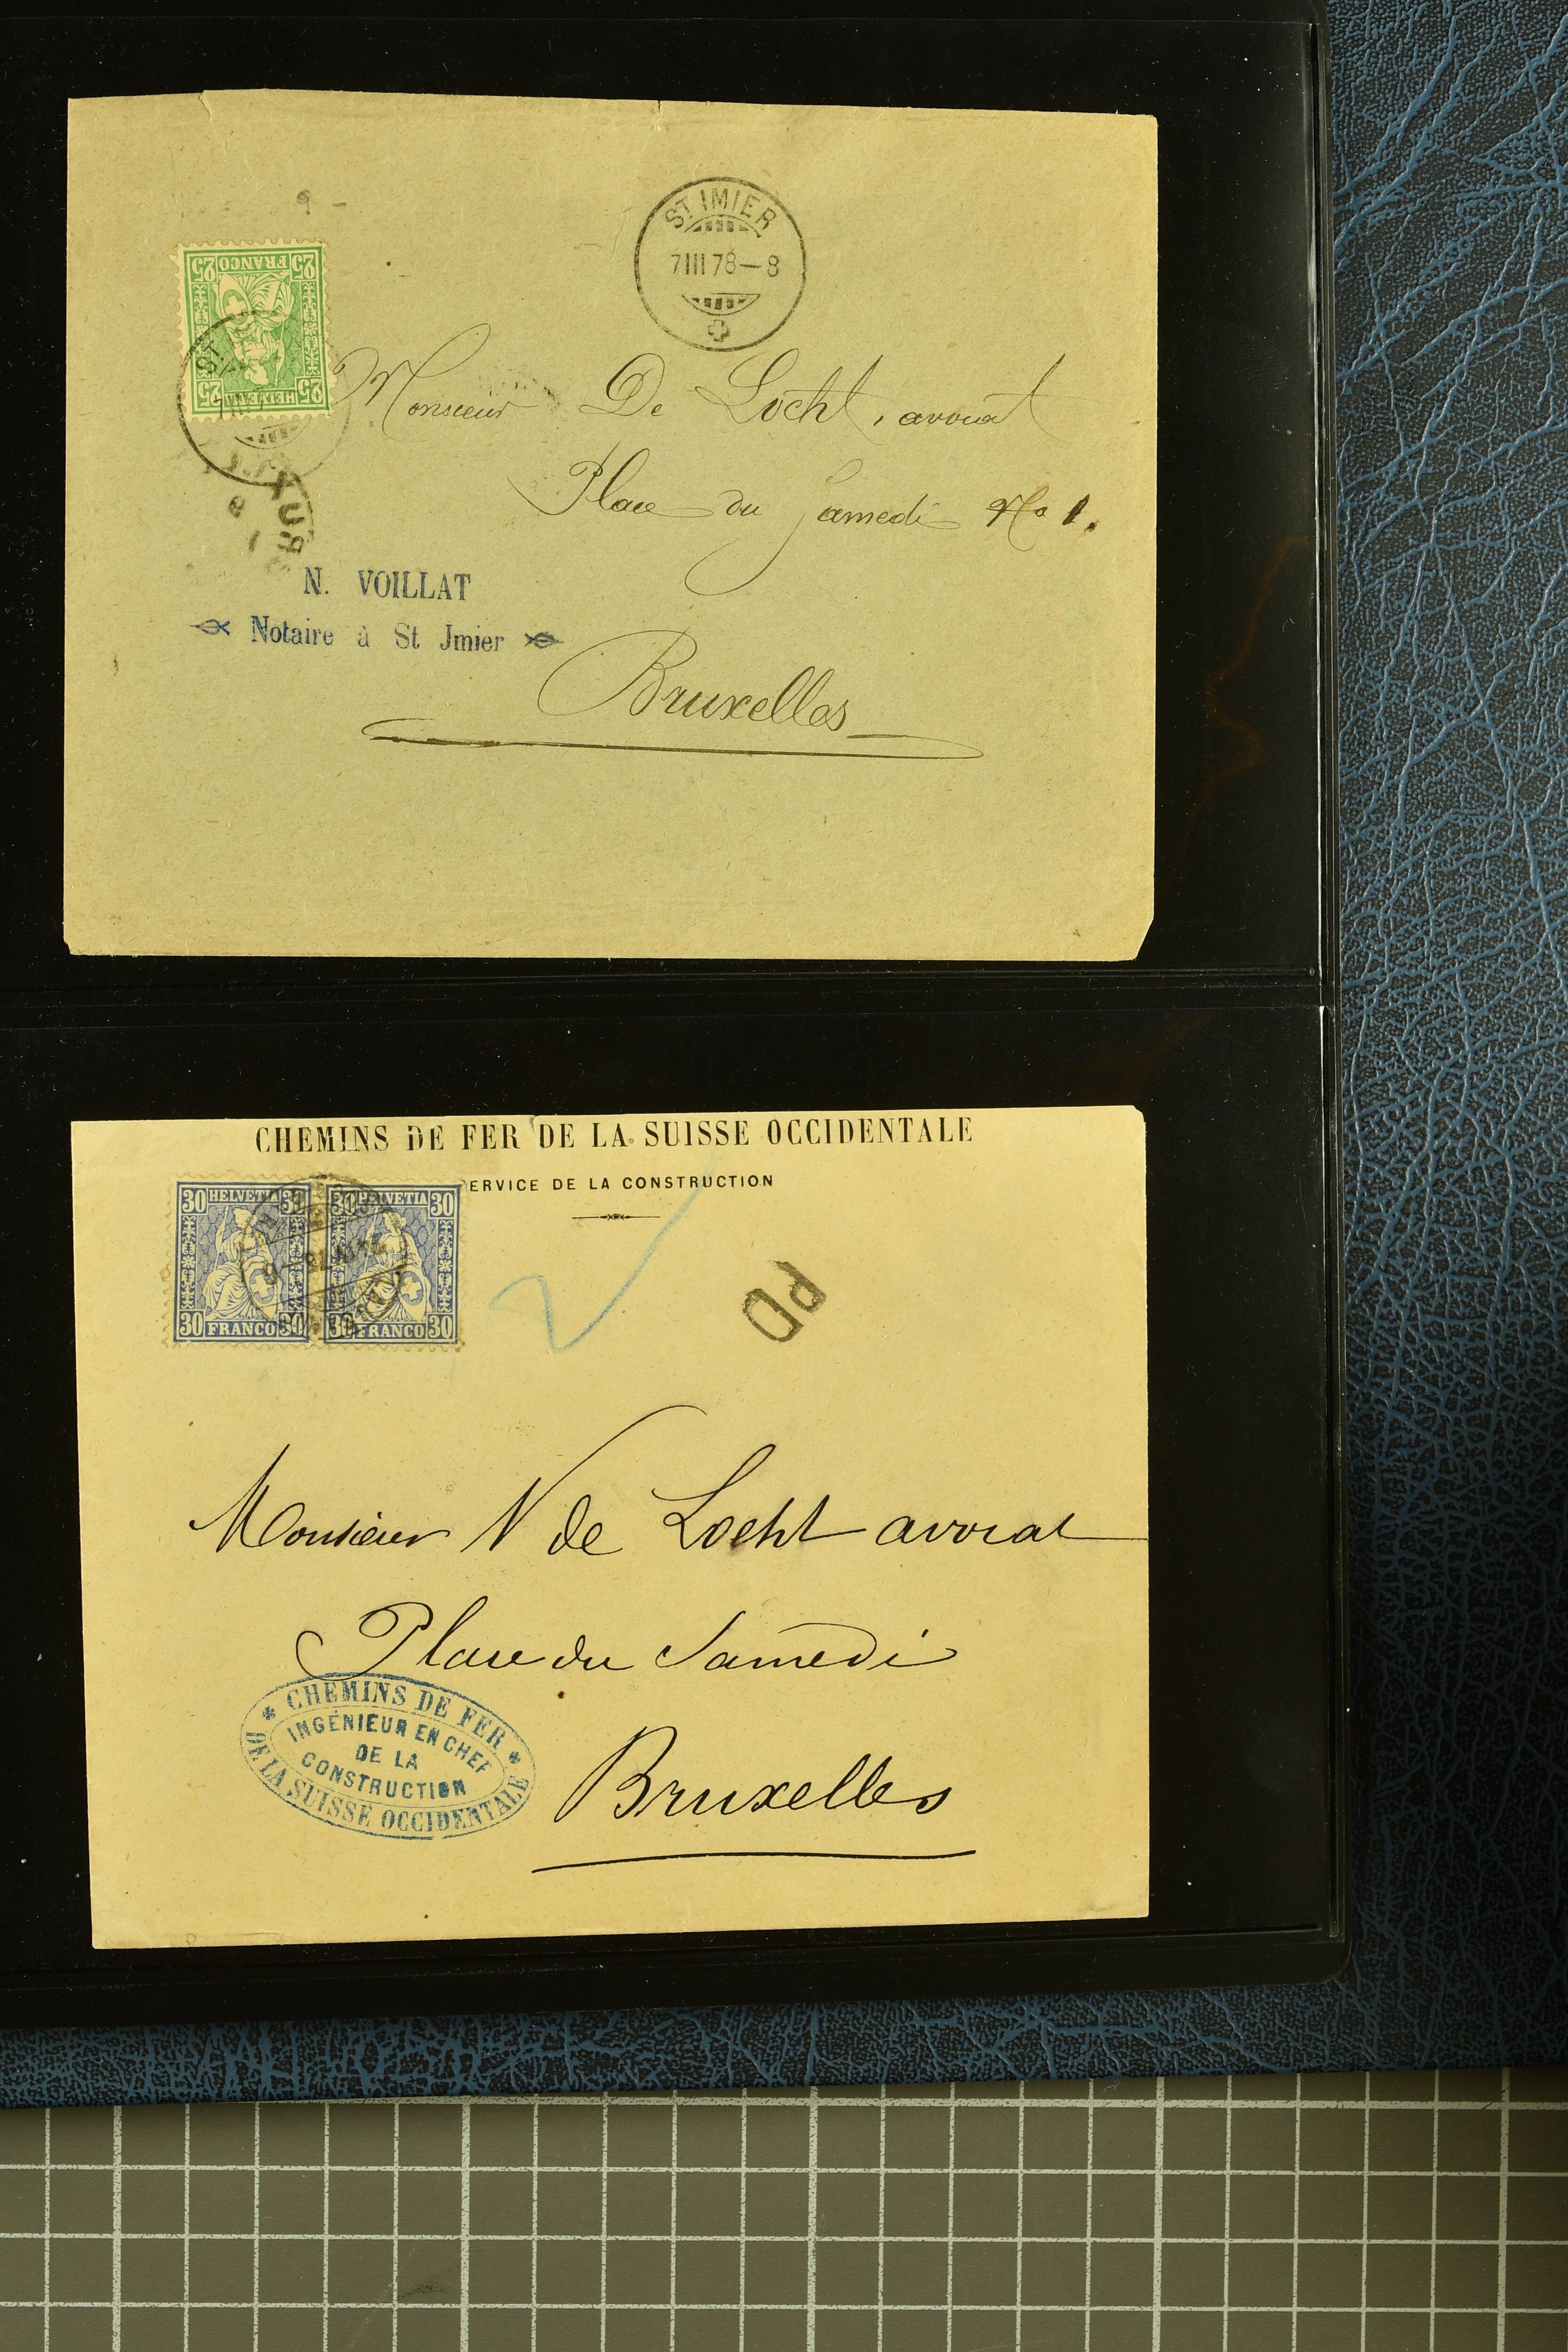 25 FRANCO 25
25 HELVETIA 25
ST. IMIER
7 III 78–8
ST.
Monsieur De Locht, avocat
Place du Samedi No 1.
BRUX
N. VOILLAT
Notaire à St Jmier
Bruxelles
CHEMINS DE FER DE LA SUISSE OCCIDENTALE
ERVICE DE LA CONSTRUCTION
30 HELVETIA 30
30 FRANCO 30
30 HELVETIA 30
30 FRANCO 30
2
PD
Monsieur N de Locht avocat
Place du Samedi
CHEMINS DE FER
DE LA SUISSE OCCIDENTALE
INGÉNIEUR EN CHEF
DE LA
CONSTRUCTION
Bruxelles